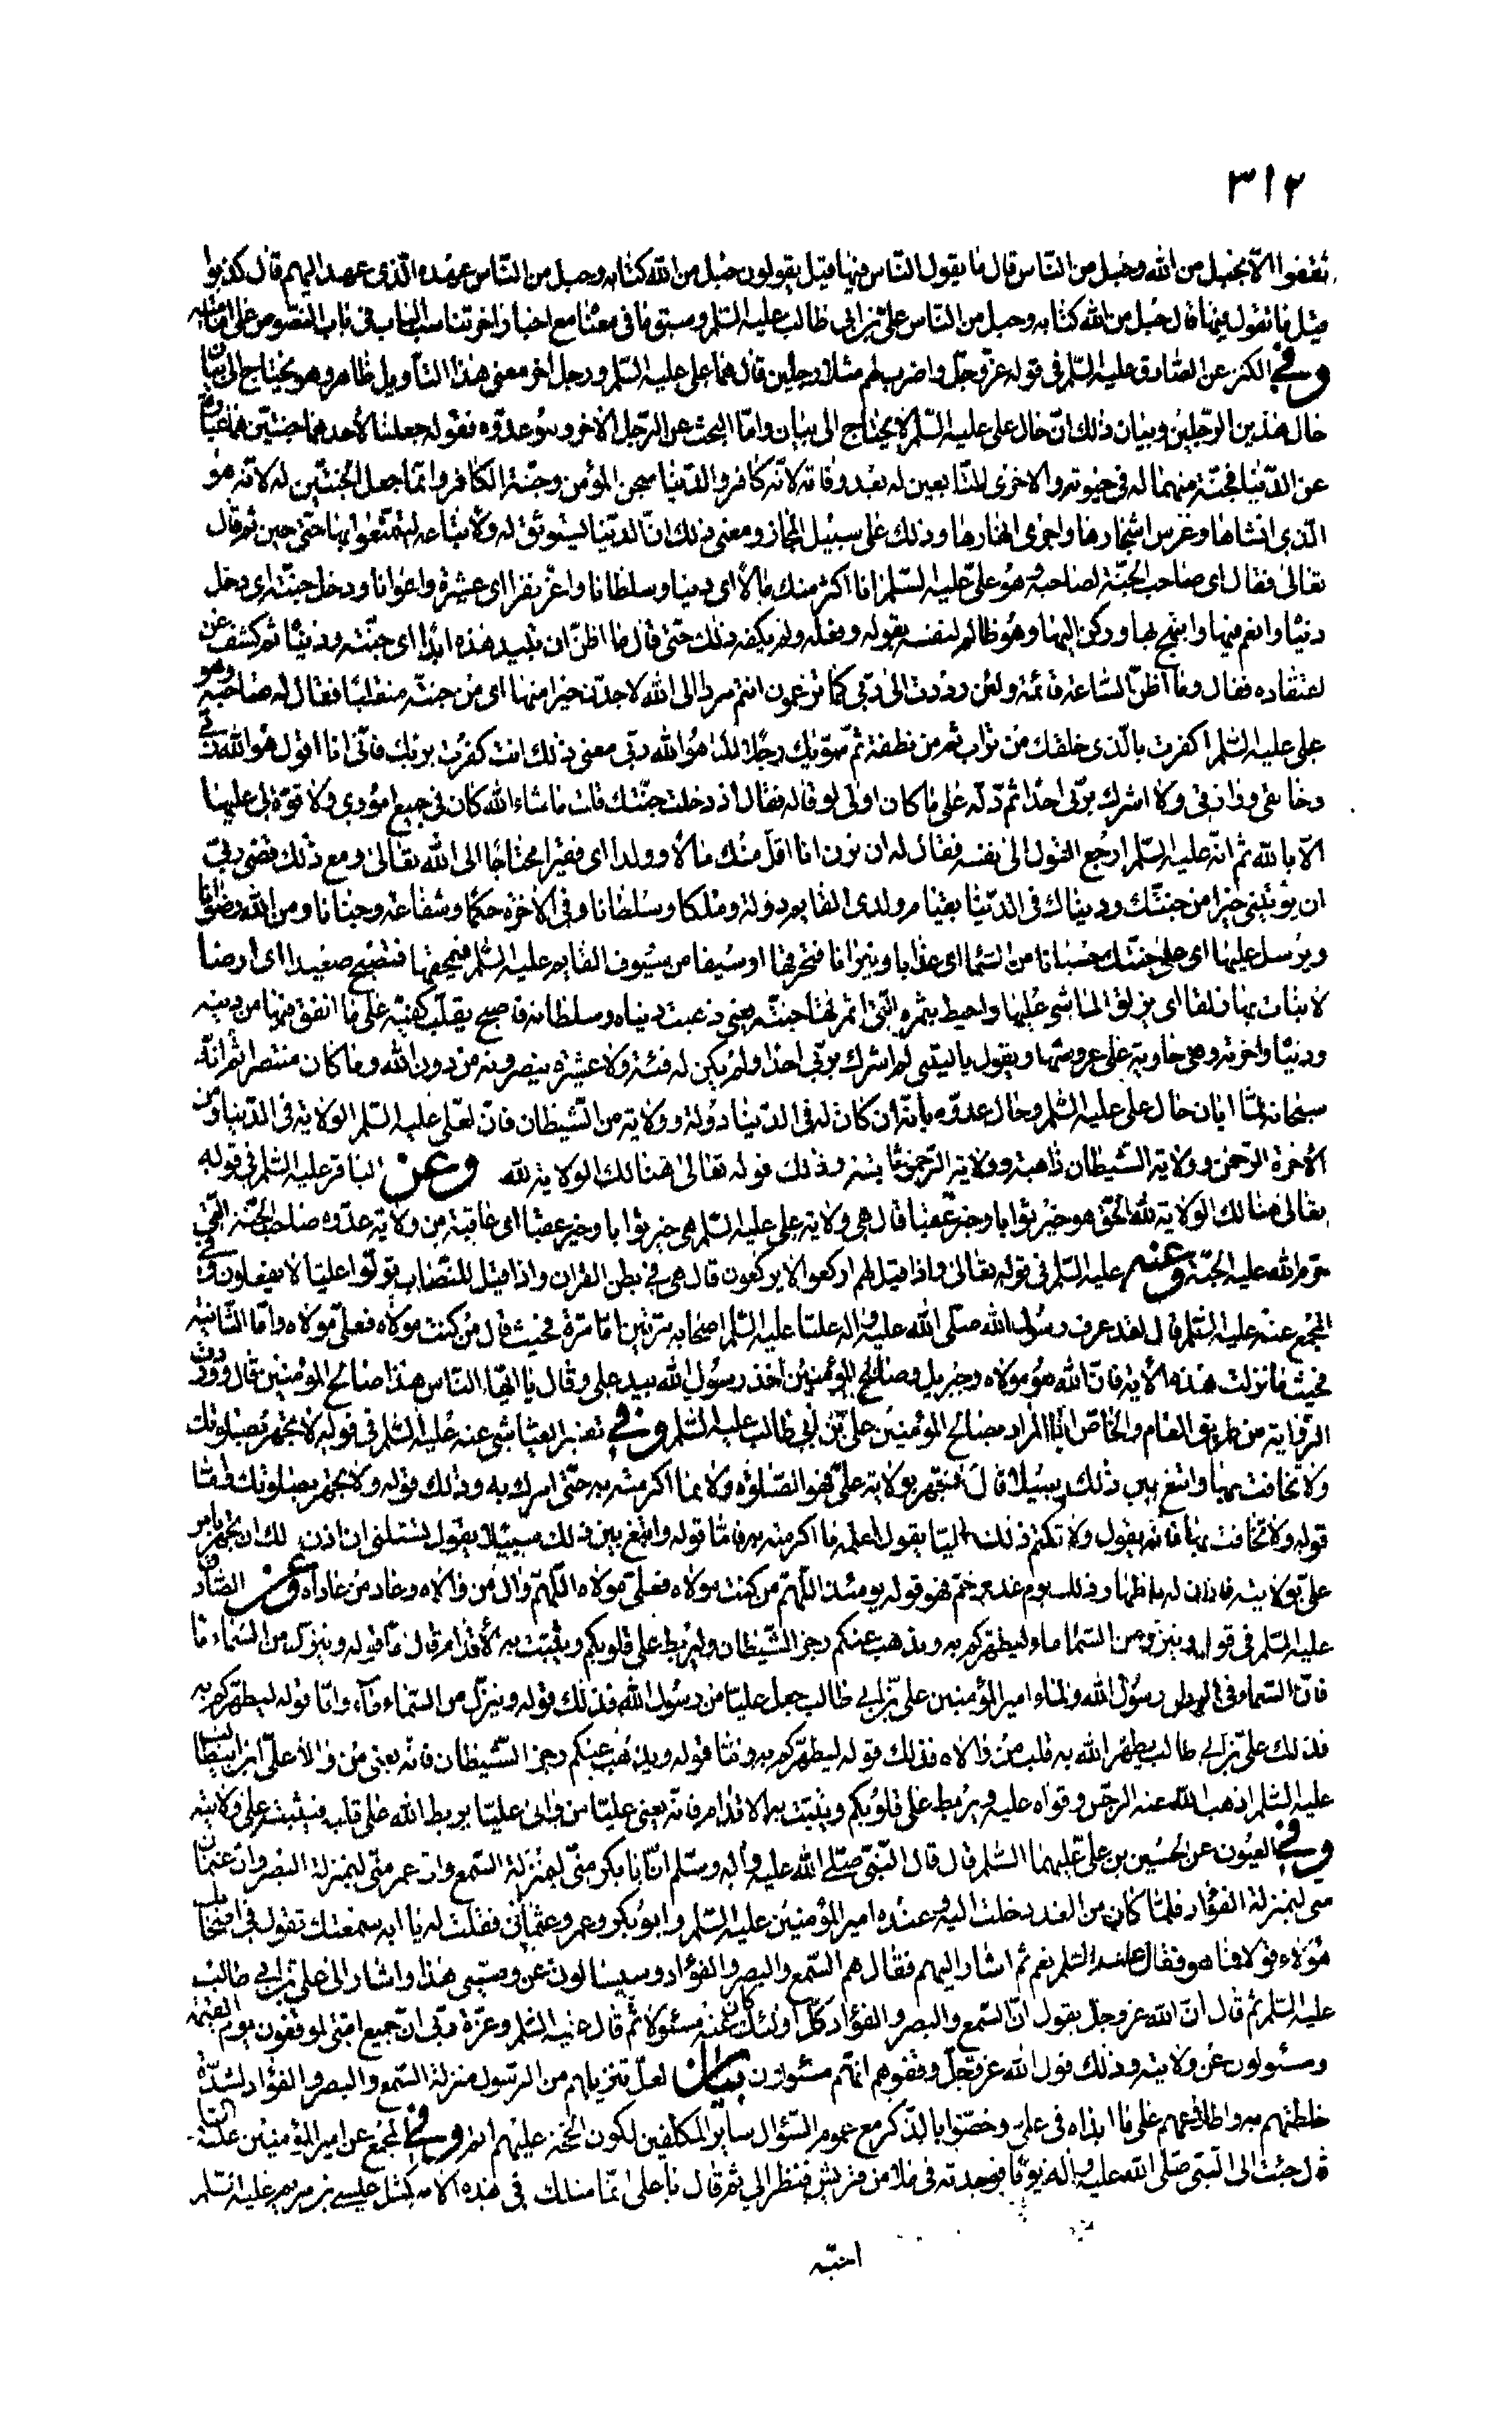 ٣١٢
ثقفوا الا بحبل من الله وحبل من الناس قال ما يقول الناس فيها قيل يقولون حبل من الله كتابه وحبل من الناس عهده الذى عهد اليهم قال كذبوا
قيل ما تقول فيها قال حبل من الله كتابه وحبل من الناس على بن ابى طالب عليه السلم وسبق ما فى معناه مع اخبار اخر تناسب الباب فى باب النصوص على
وفى الكنز عن الصادق عليه السلم فى قوله عز وجل واضرب لهم مثلا رجلين قال هما على عليه السلم ورجل اخر معنى هذا التأويل ظاهر وهو يحتاج الى بيان
حال هذين الرجلين وبيان ذلك ان حال على عليه السلم لا يحتاج الى بيان واما البحث عن الرجل الاخر وهو عدوه فقوله جعلنا لاحدهما جنتين هما عبارة
عن الدنيا فجنة منهما له فى حيوته والاخرى للتابعين له بعد وفاته لانه كافر والدنيا سجن المؤمن وجنة الكافر وانما جعل الجنتين له لانه هو
الذى انشاها وغرس اشجارها واجرى انهارها وذلك على سبيل المجاز ومعنى ذلك ان الدنيا استوثق له ولاتباعه ليتمتعوا بها حتى حين ثم قال
تعالى فقال اى صاحب الجنة لصاحبه وهو على عليه السلم انا اكثر منك مالا اى دنيا وسلطانا واعز نفرا اى عشيرة واعوانا ودخل جنته اى دخل
دنياه وانعم فيها وابتهج بها وركن اليها وهو ظالم لنفسه بقوله وفعله ولم يكفه ذلك حتى قال ما اظن ان تبيد هذه ابدا اى جنته ودنياه ثم كشف عن
اعتقاده فقال وما اظن الساعة قائمة ولئن رددت الى ربى كما تزعمون انتم مردا الى الله لاجدن خيرا منها اى من جنته منقلبا فقال له صاحبه وهو
على عليه السلم اكفرت بالذى خلقك من تراب ثم من نطفة ثم سويك رجلا لكنا هو الله ربى معنى ذلك انت كفرت بربك فانى انا اقول هو الله ربى
وخالقى ورازقى ولا اشرك بربى احدا ثم دله على ما كان اولى لو قاله فقال اذ دخلت جنتك قلت ما شاء الله كان فى جميع امورى ولا قوة لى عليها
الا بالله ثم انه عليه السلم ارجع القول الى نفسه فقال له ان ترن انا اقل منك مالا وولدا اى فقيرا محتاجا الى الله تعالى ومع ذلك فعسى ربى
ان يؤتينى خيرا من جنتك ودنياك فى الدنيا بقيام ولدى القايم دولة وملكا وسلطانا وفى الاخرة حكما وشفاعة وجنانا ومن الله رضوانا
ويرسل عليها اى على جنتك حسبانا من السماء اى عذابا ونيرانا فتحرقها او سيفا من سيوف القايم عليه السلم فيمحقها فتصبح صعيدا اى ارضا
لا نبات بها زلقا اى يزلق الماشى عليها واحيط بثمره التى اثمرتها جنته يعنى ذهبت دنياه وسلطانه فاصبح يقلب كفيه على ما انفق فيها من دينه
ودنياه واخرته وهى خاوية على عروشها ويقول يا ليتنى لم اشرك بربى احدا ولم يكن له فئة ولا عشيرة ينصرونه من دون الله وما كان منتصرا ثم انه
سبحانه لما ابان حال على عليه السلم وحال عدوه بانه ان كان له فى الدنيا دولة وولاية من الشيطان فان لعلى عليه السلم الولاية فى الدنيا
الاخرة الرحمن وولاية الشيطان ذاهبة وولاية الرحمن ثابتة وذلك قوله تعالى هنالك الولاية لله وعن الباقر عليه السلم فى قوله
تعالى هنالك الولاية لله الحق هو خير ثوابا وخير عقبا قال هى ولاية على عليه السلم هى خير ثوابا وخير عقبا اى عاقبة من ولاية عدوه صاحب الجنة التى
حرم الله عليه الجنة وعنه عليه السلم فى قوله تعالى واذا قيل لهم اركعوا لا يركعون قال هى فى بطن القران واذا قيل للنصاب تولوا عليا لا يفعلون وفى
المجمع عنه عليه السلم قال لقد عرف رسول الله صلى الله عليه واله عليا عليه السلم اصحابه مرتين اما مرة فحيث قال من كنت مولاه فعلى مولاه واما الثانية
فحيث ما نزلت هذه الاية فان الله هو مولاه وجبريل وصالح المؤمنين اخذ رسول الله بيد على وقال يا ايها الناس هذا صالح المؤمنين قال ووردت
الرواية من طريق العام والخاص ان المراد بصالح المؤمنين على بن ابى طالب عليه السلم وفى تفسير العياشى عنه عليه السلم فى قوله لا تجهر بصلوتك
ولا تخافت بها وابتغ بين ذلك سبيلا قال لا تجهر بولاية على فهو الصلوة ولا بما اكرمته به حتى امرك به وذلك قوله ولا تجهر بصلوتك واما
قوله ولا تخافت بها فانه يقول ولا تكتم ذلك عليا يقول اعلمه ما اكرمته به فاما قوله وابتغ بين ذلك سبيلا يقول تسئلنى ان اذن لك ان تجهر بامر
على بولايته فاذن له باظهار ذلك يوم غدير خم فهو قوله يومئذ اللهم من كنت مولاه فعلى مولاه اللهم وال من والاه وعاد من عاداه وعن الصادق
عليه السلم فى قوله وينزل من السماء ماء ليطهركم به ويذهب عنكم رجز الشيطان وليربط على قلوبكم ويثبت به الاقدام قال اما قوله وينزل من السماء ما
فان السماء فى رسول الله والماء امير المؤمنين على بن ابى طالب جعل عليا من رسول الله فذلك قوله وينزل من السماء ماء واما قوله ليطهركم به
فذلك على بن ابى طالب يطهر الله به قلب من والاه فذلك قوله ليطهركم به واما قوله ويذهب عنكم رجز الشيطان فانه يعنى من والا على بن ابيطالب
عليه السلم اذهب الله عنه الرجس وقواه عليه وليربط على قلوبكم ويثبت به الاقدام فانه يعنى عليا من والى عليا يربط الله على قلبه فيثبت على ولايته
وفى العيون عن الحسين بن على عليهما السلم قال قال النبى صلى الله عليه واله وسلم ان ابا بكر منى لبمنزلة السمع وان عمر منى لبمنزلة البصر وان عثمان
منى لبمنزلة الفؤاد فلما كان من الغد دخلت اليه وعنده امير المؤمنين عليه السلم وابو بكر وعمر وعثمان فقلت له يا ابه سمعتك تقول فى اصحابك
هؤلاء قولا فما هو فقال عليه السلم نعم ثم اشار اليهم فقال هم السمع والبصر والفؤاد وسيسالون عن وصيى هذا واشار الى على بن ابى طالب
عليه السلم ثم قال ان الله عز وجل يقول ان السمع والبصر والفؤاد كل اولئك كان عنه مسئولا ثم قال عليه السلم وعزة ربى ان جميع امتى لموقفون يوم القيمة
ومسئولون عن ولايته وذلك قول الله عز وجل وقفوهم انهم مسئولون بيان لعل تنزيلهم من الرسول منزلة السمع والبصر والفؤاد لشدة
خلطتهم به واطلاعهم على ما ابداه فى على وخصوا بالذكر مع عموم السؤال ساير المكلفين لكون الحجة عليهم اتم وفى المجمع عن امير المؤمنين عليه السلم
قال جئت الى النبى صلى الله عليه واله يوما فوجدته فى ملاء من قريش فنظر الى ثم قال يا على انما مثلك فى هذه الامة كمثل عيسى بن مريم عليه السلم
احبه